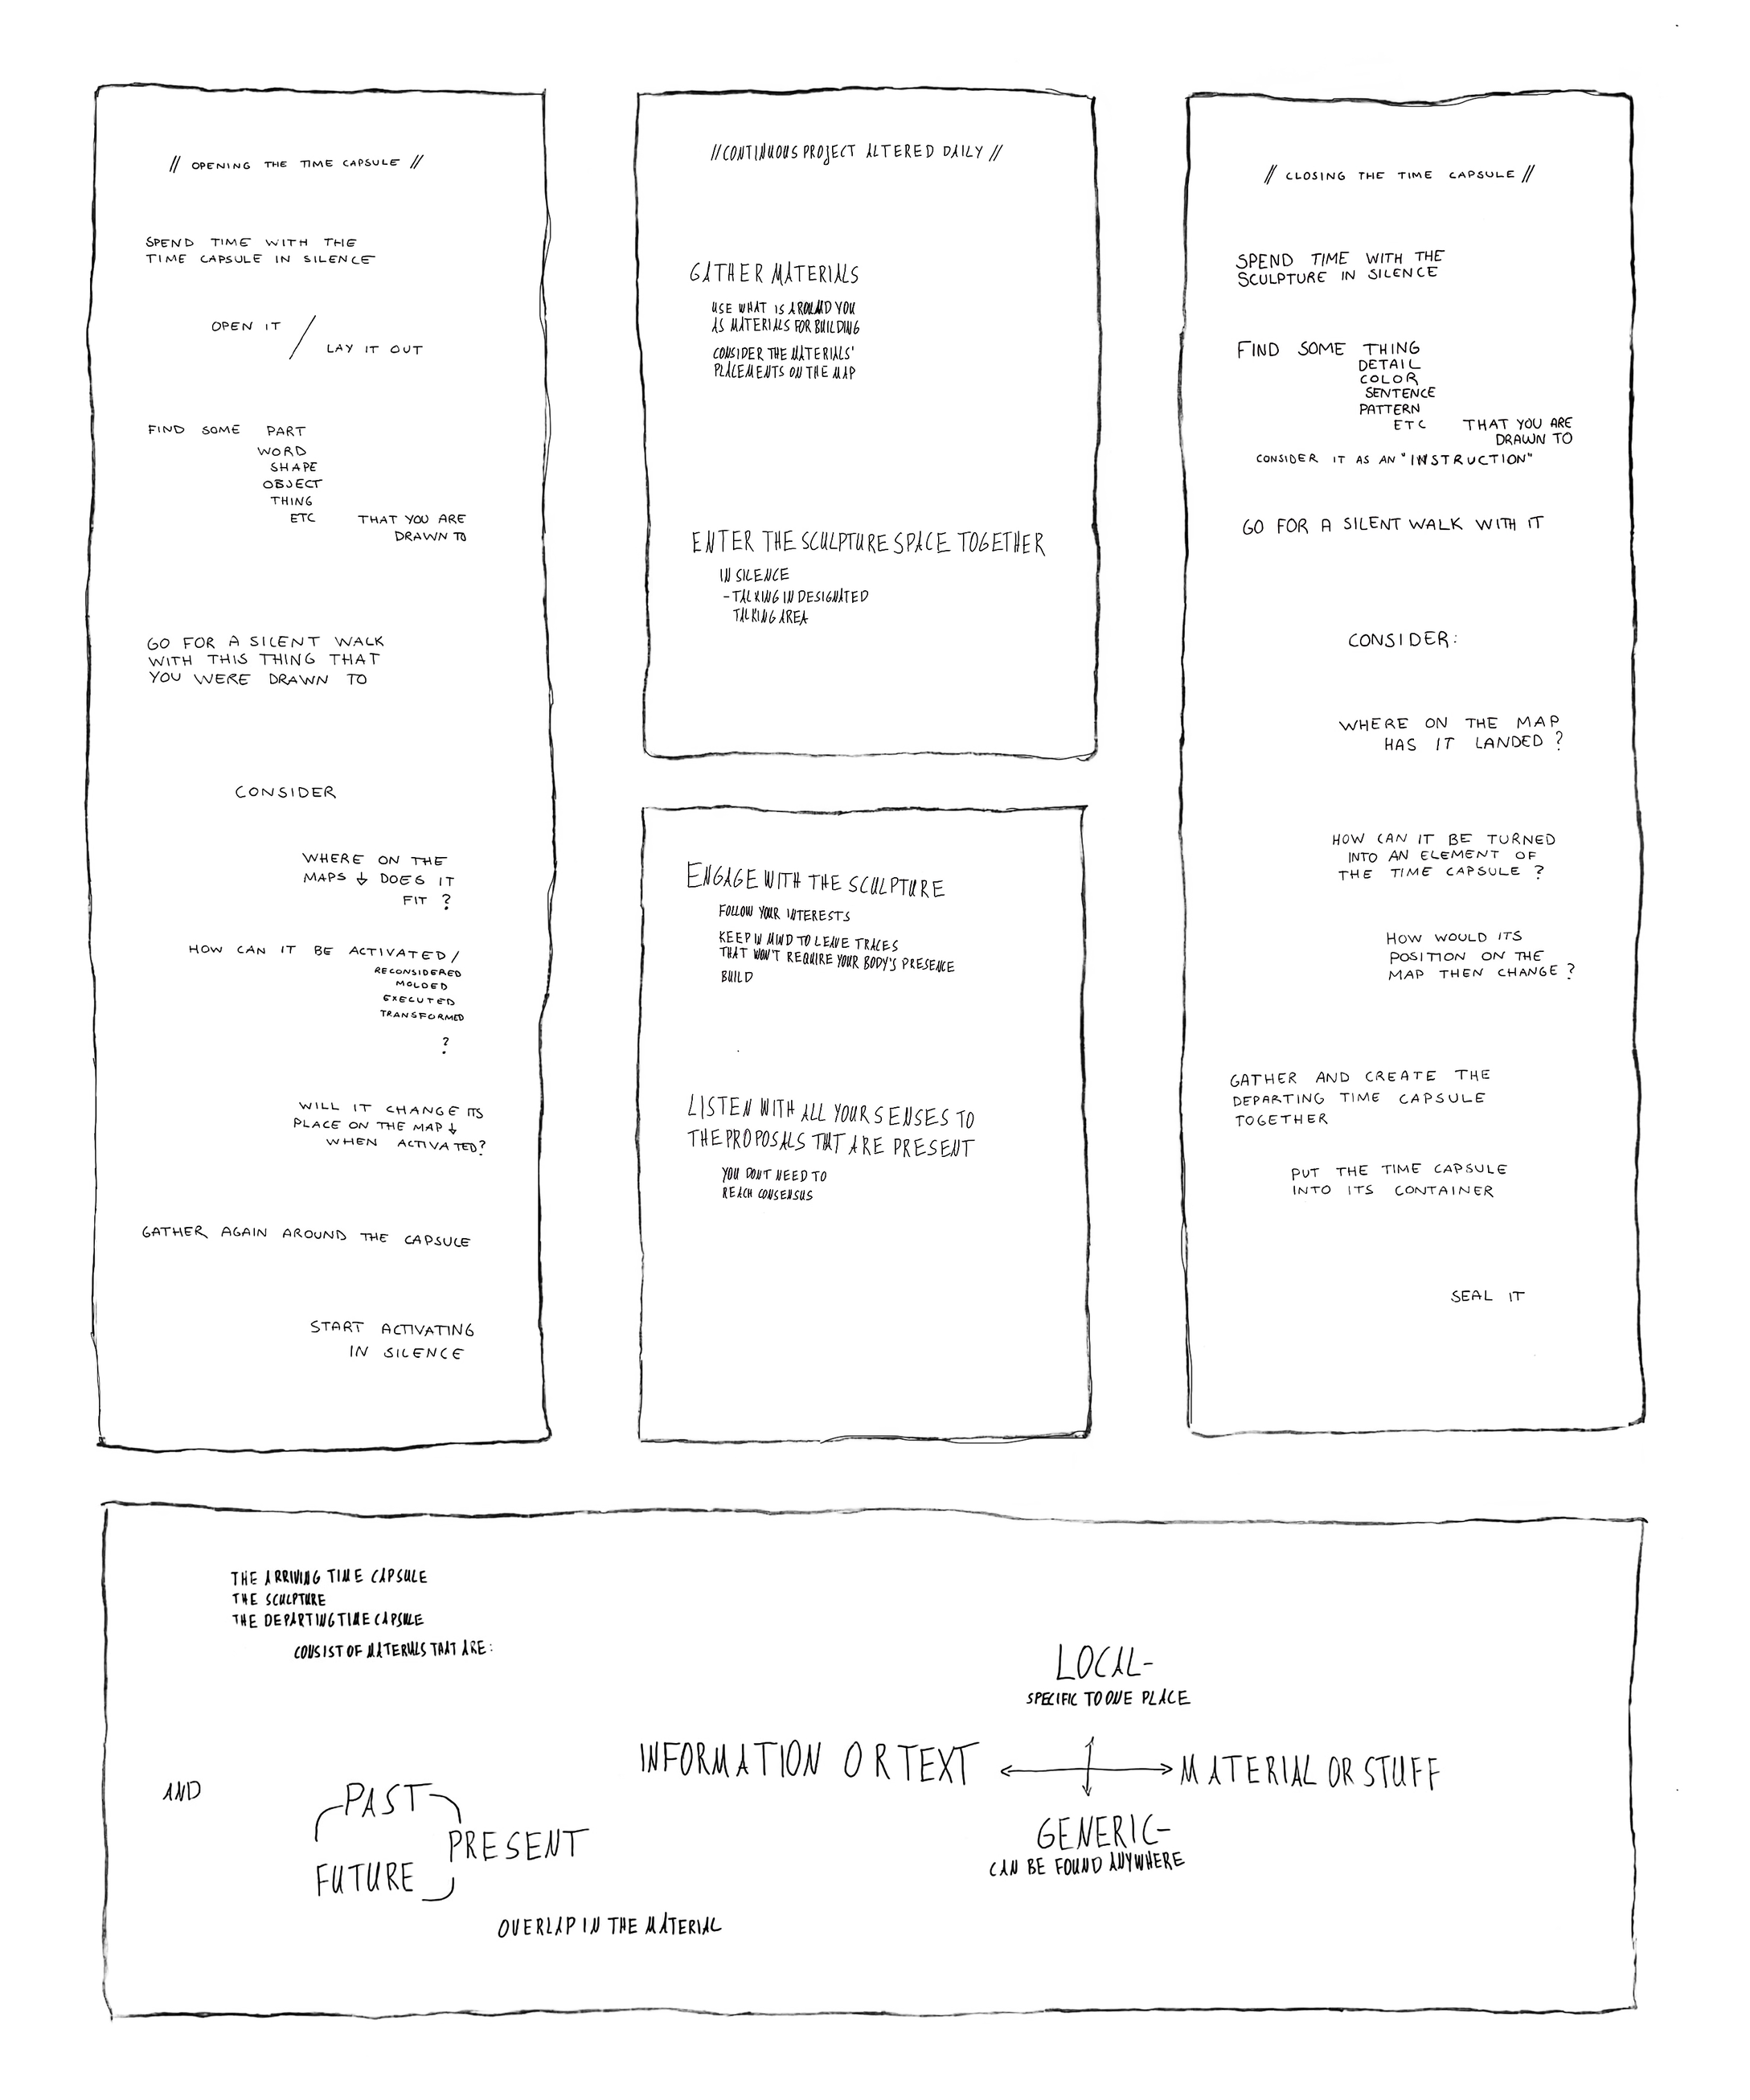 // OPENING THE TIME CAPSULE //
SPEND TIME WITH THE
TIME CAPSULE IN SILENCE
OPEN IT /
LAY IT OUT
FIND SOME PART
WORD
SHAPE
OBJECT
THING
ETC THAT YOU ARE
DRAWN TO
GO FOR A SILENT WALK
WITH THIS THING THAT
YOU WERE DRAWN TO
CONSIDER
WHERE ON THE
MAPS ↓ DOES IT
FIT ?
HOW CAN IT BE ACTIVATED /
RECONSIDERED
MOLDED
EXECUTED
TRANSFORMED
?
WILL IT CHANGE ITS
PLACE ON THE MAP ↓
WHEN ACTIVATED?
GATHER AGAIN AROUND THE CAPSULE
START ACTIVATING
IN SILENCE
// CONTINUOUS PROJECT ALTERED DAILY //
GATHER MATERIALS
USE WHAT IS AROUND YOU
AS MATERIALS FOR BUILDING
CONSIDER THE MATERIALS'
PLACEMENTS ON THE MAP
ENTER THE SCULPTURE SPACE TOGETHER
IN SILENCE
- TALKING IN DESIGNATED
TALKING AREA
ENGAGE WITH THE SCULPTURE
FOLLOW YOUR INTERESTS
KEEP IN MIND TO LEAVE TRACES
THAT WON'T REQUIRE YOUR BODY'S PRESENCE
BUILD
LISTEN WITH ALL YOUR SENSES TO
THE PROPOSALS THAT ARE PRESENT
YOU DONT NEED TO
REACH CONSENSUS
// CLOSING THE TIME CAPSULE //
SPEND TIME WITH THE
SCULPTURE IN SILENCE
FIND SOME THING
DETAIL
COLOR
SENTENCE
PATTERN
ETC THAT YOU ARE
DRAWN TO
CONSIDER IT AS AN "INSTRUCTION"
GO FOR A SILENT WALK WITH IT
CONSIDER:
WHERE ON THE MAP
HAS IT LANDED ?
HOW CAN IT BE TURNED
INTO AN ELEMENT OF
THE TIME CAPSULE ?
HOW WOULD ITS
POSITION ON THE
MAP THEN CHANGE ?
GATHER AND CREATE THE
DEPARTING TIME CAPSULE
TOGETHER
PUT THE TIME CAPSULE
INTO ITS CONTAINER
SEAL IT
THE ARRIVING TIME CAPSULE
THE SCULPTURE
THE DEPARTING TIME CAPSULE
CONSIST OF MATERIALS THAT ARE:
LOCAL-
SPECIFIC TO ONE PLACE
INFORMATION OR TEXT ↔ MATERIAL OR STUFF
GENERIC-
CAN BE FOUND ANYWHERE
AND
PAST
PRESENT
FUTURE
OVERLAP IN THE MATERIAL